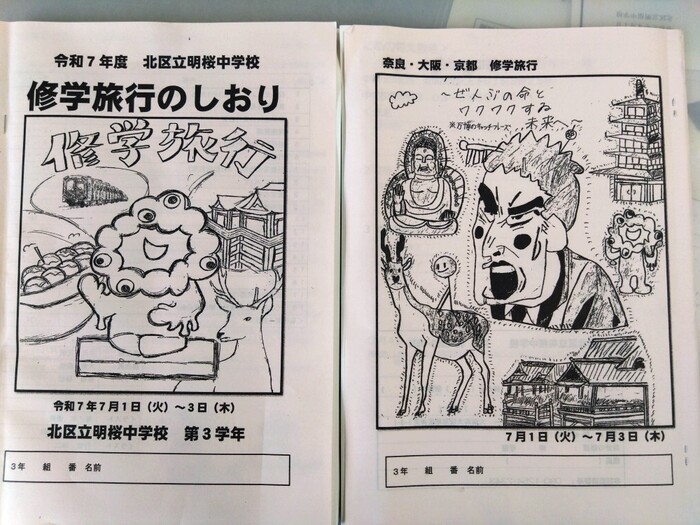 令和７年度　北区立明桜中学校
修学旅行のしおり
修学旅行
令和７年７月１日（火）～３日（木）
北区立明桜中学校　第３学年
３年　組　番 名前
奈良・大阪・京都　修学旅行
～ぜんぶの命と
ワクワクする
未来へ～
※万博のキャッチフレーズ
７月１日（火）～７月３日（木）
３年　組　番 名前